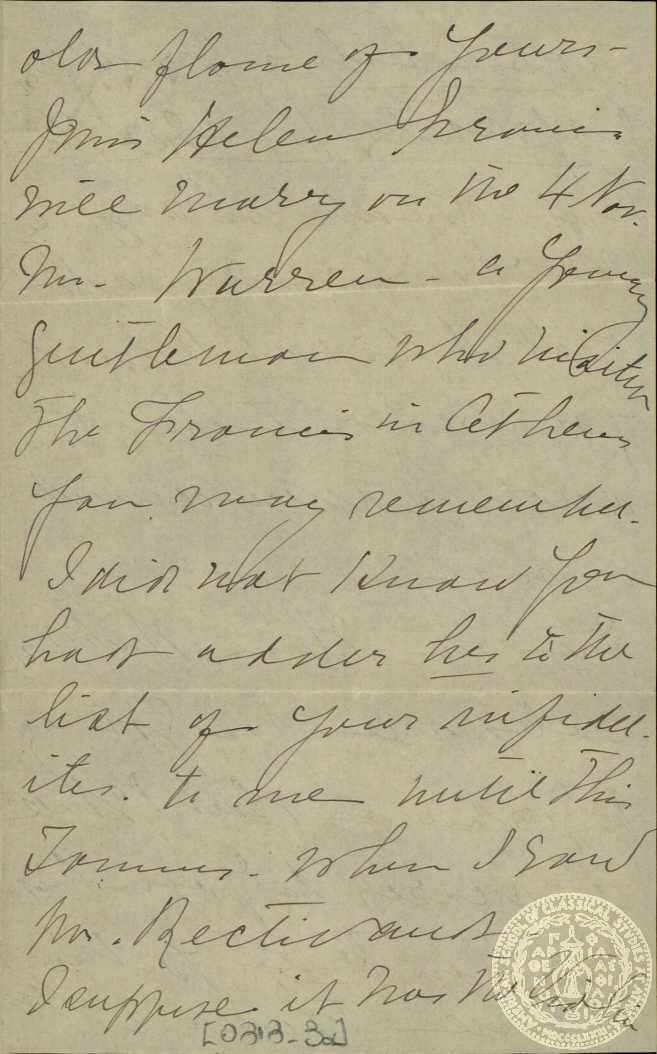 old flame of yours -
Miss Helen Francis
will marry on the 4 Nov.
Mr. Warren - a young
gentleman who visited
the Francis in Athens
you may remember.
I did not know you
had added her to the
list of your infidel-
ites. to me until this
Summer - when I saw
Mr.
I suppose it was the
[0313-3a]